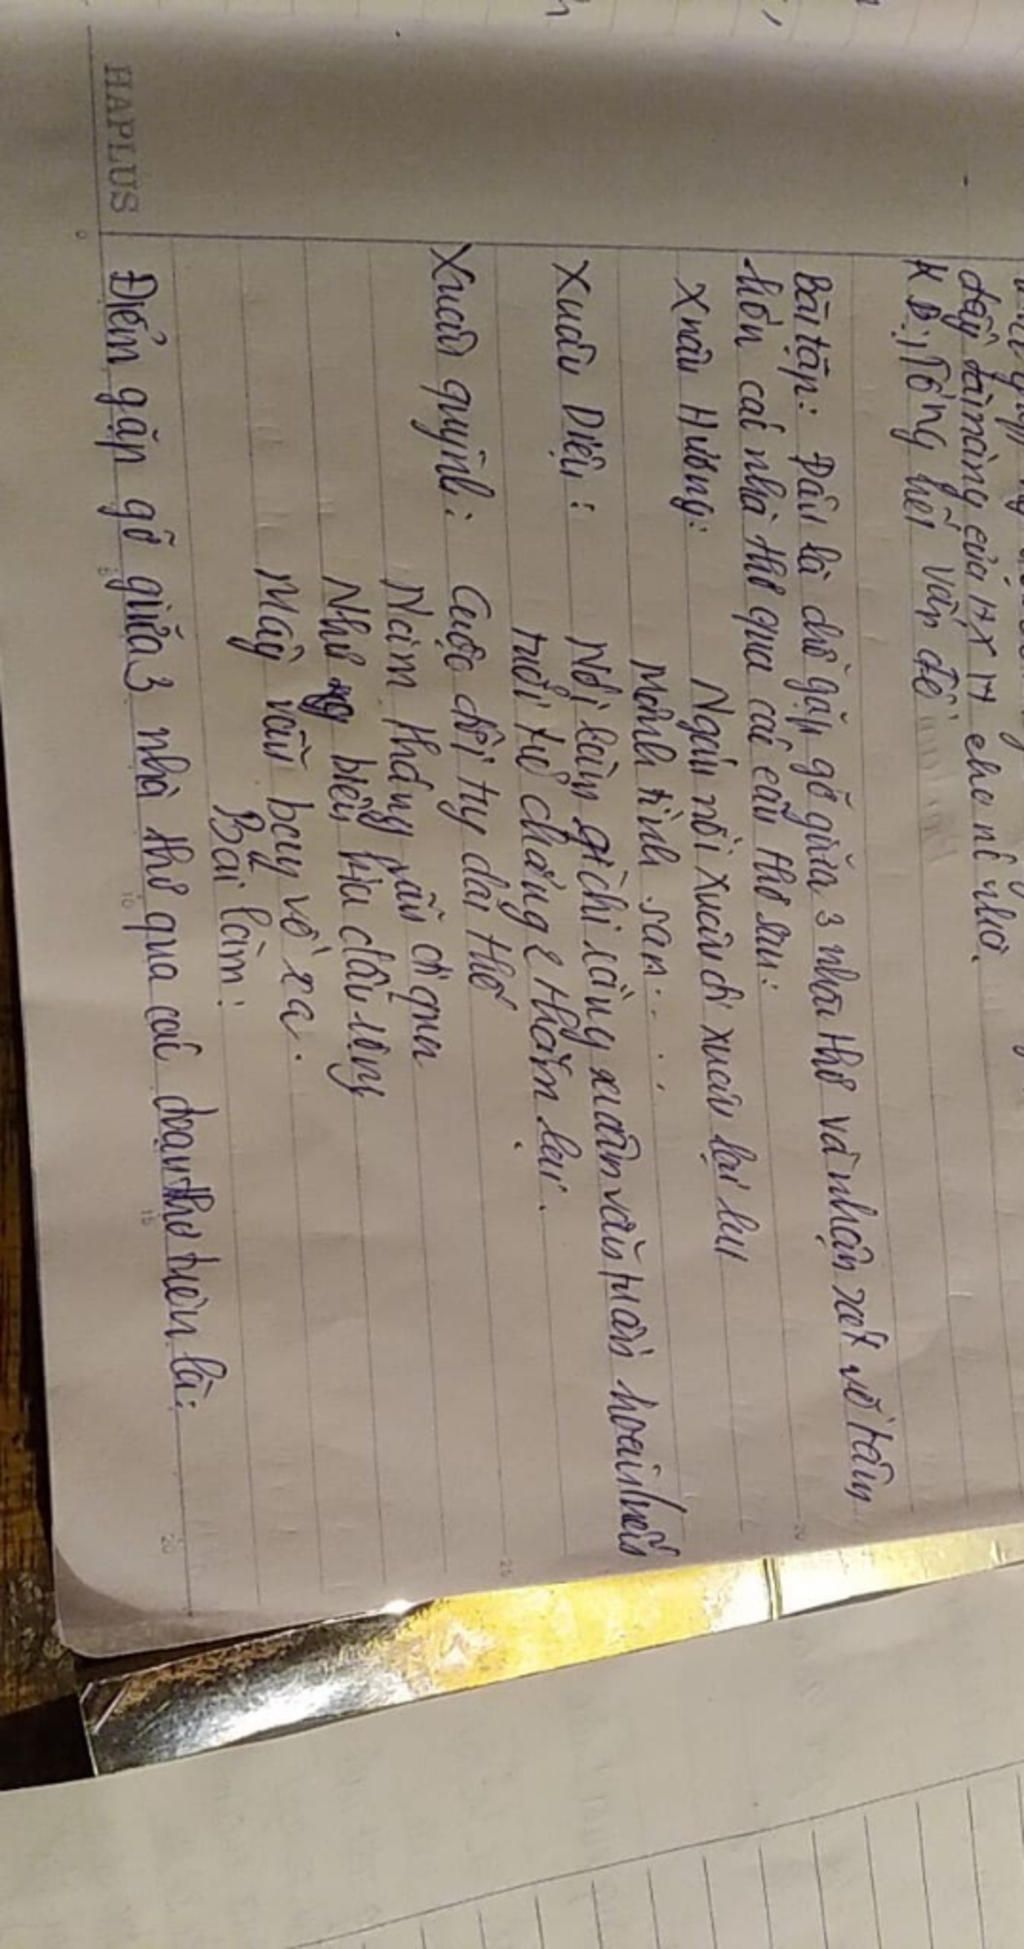 đầy đàmàng của HXH cho nỗ nhỏ.
KB: Tổng kết vấn đề
Bài tập: Đâu là chỗ gặp gỡ giữa 3 nhà thơ và nhận xét về tâm
hồn các nhà thơ qua các câu thơ sau:
Xuân Hương: Ngán nỗi xuân đi xuân lại lại
Mảnh tình san.....
Xuân Diệu: Nói làm gì chi rằng xuân vẫn tuần hoàn/nếu
tuổi trẻ chẳng 2 thắm lại.
Xuân quỳnh: Cuộc đời tuy dài thế
Năm tháng vẫn đi qua
Như biển kia dẫu rộng
Mây vẫn bay về xa.
Bài làm:
Điểm gặp gỡ giữa 3 nhà thơ qua các đoạn thơ trên là:
HAPLUS